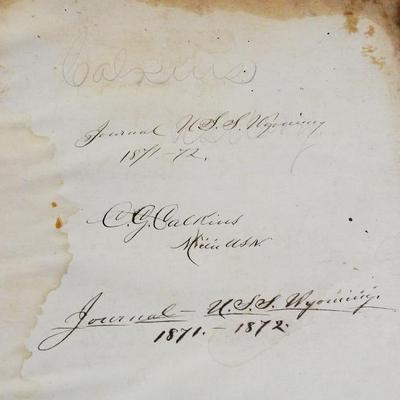 Calkins
Journal U.S.S. Wyoming
1871-72.
C.G. Calkins
Journal - U.S.S. Wyoming.
1871. - 1872.